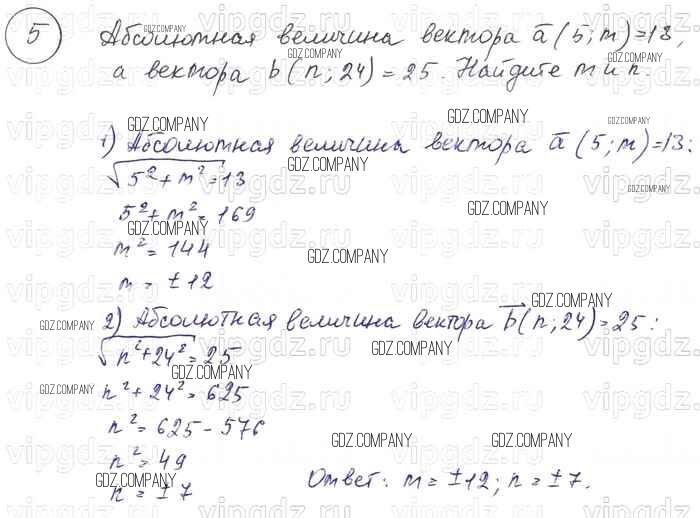 5 Абсолютная величина вектора a̅ (5; m) = 13,
а вектора b (n; 24) = 25. Найдите m и n.
1) Абсолютная величина вектора a̅ (5; m) = 13:
√5² + m² = 13
5² + m² = 169
m² = 144
m = ±12
2) Абсолютная величина вектора b⃗ (n; 24) = 25:
√n² + 24² = 25
n² + 24² = 625
n² = 625 - 576
n² = 49
n = ±7
Ответ: m = ±12; n = ±7.